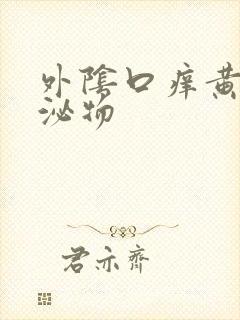 外陰口痒黄
泌物
君亦齊